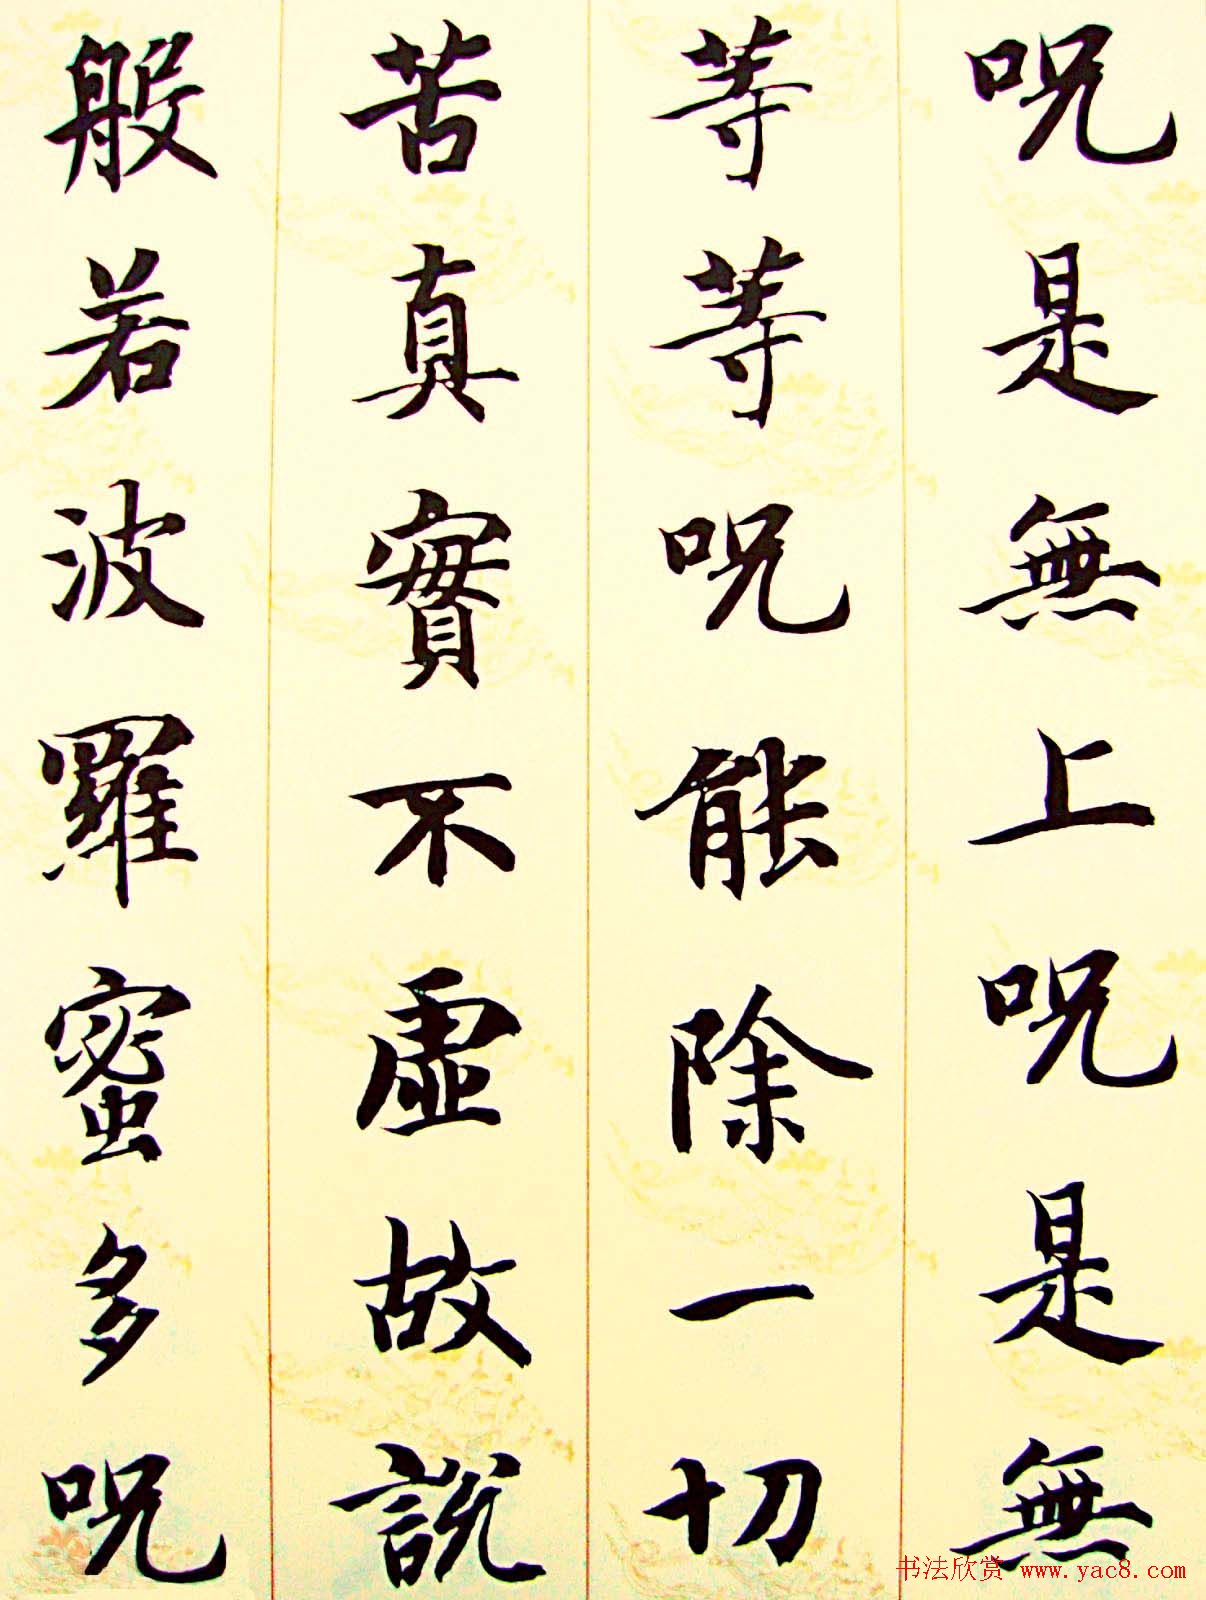 呪是無上呪是無
等等呪能除一切
苦真實不虛故說
般若波羅蜜多呪
书法欣赏 www.yac8.com